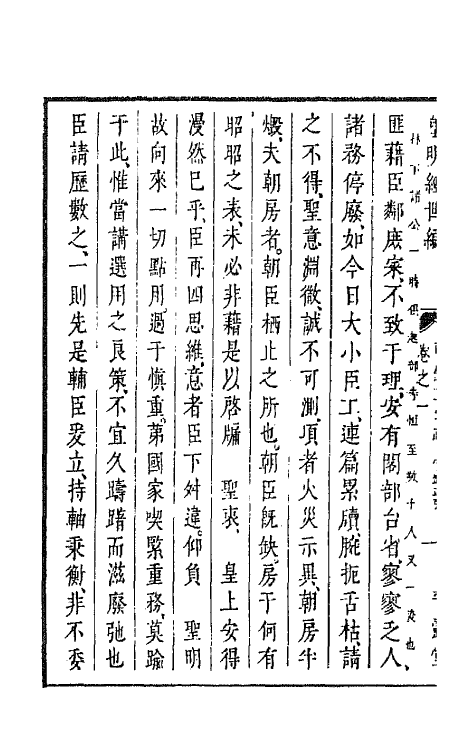 皇明經世編 卷之一
林下諸公一時俱起部寺恒至數十人又一变也
匪藉臣鄰廒寀、不致于理、安有閣部台省、寥寥乏人、
諸務停廢、如今日大小臣工、連篇累牘、腕扼舌枯、請
之不得、聖意淵微、誠不可測、項者火災示異、朝房半
燬、夫朝房者、朝臣栖止之所也、朝臣旣缺、房于何有
昭昭之表、未必非藉是以啓牖 聖衷、 皇上安得
漫然已乎、臣再四思維、意者臣下舛違、仰負 聖明
故向來一切點用、過于愼重、第國家喫緊重務、莫踰
于此、惟當講選用之良策、不宜久躊躇而滋廢弛也
臣請歷數之、一則先是輔臣爰立、持軸秉衡、非不委